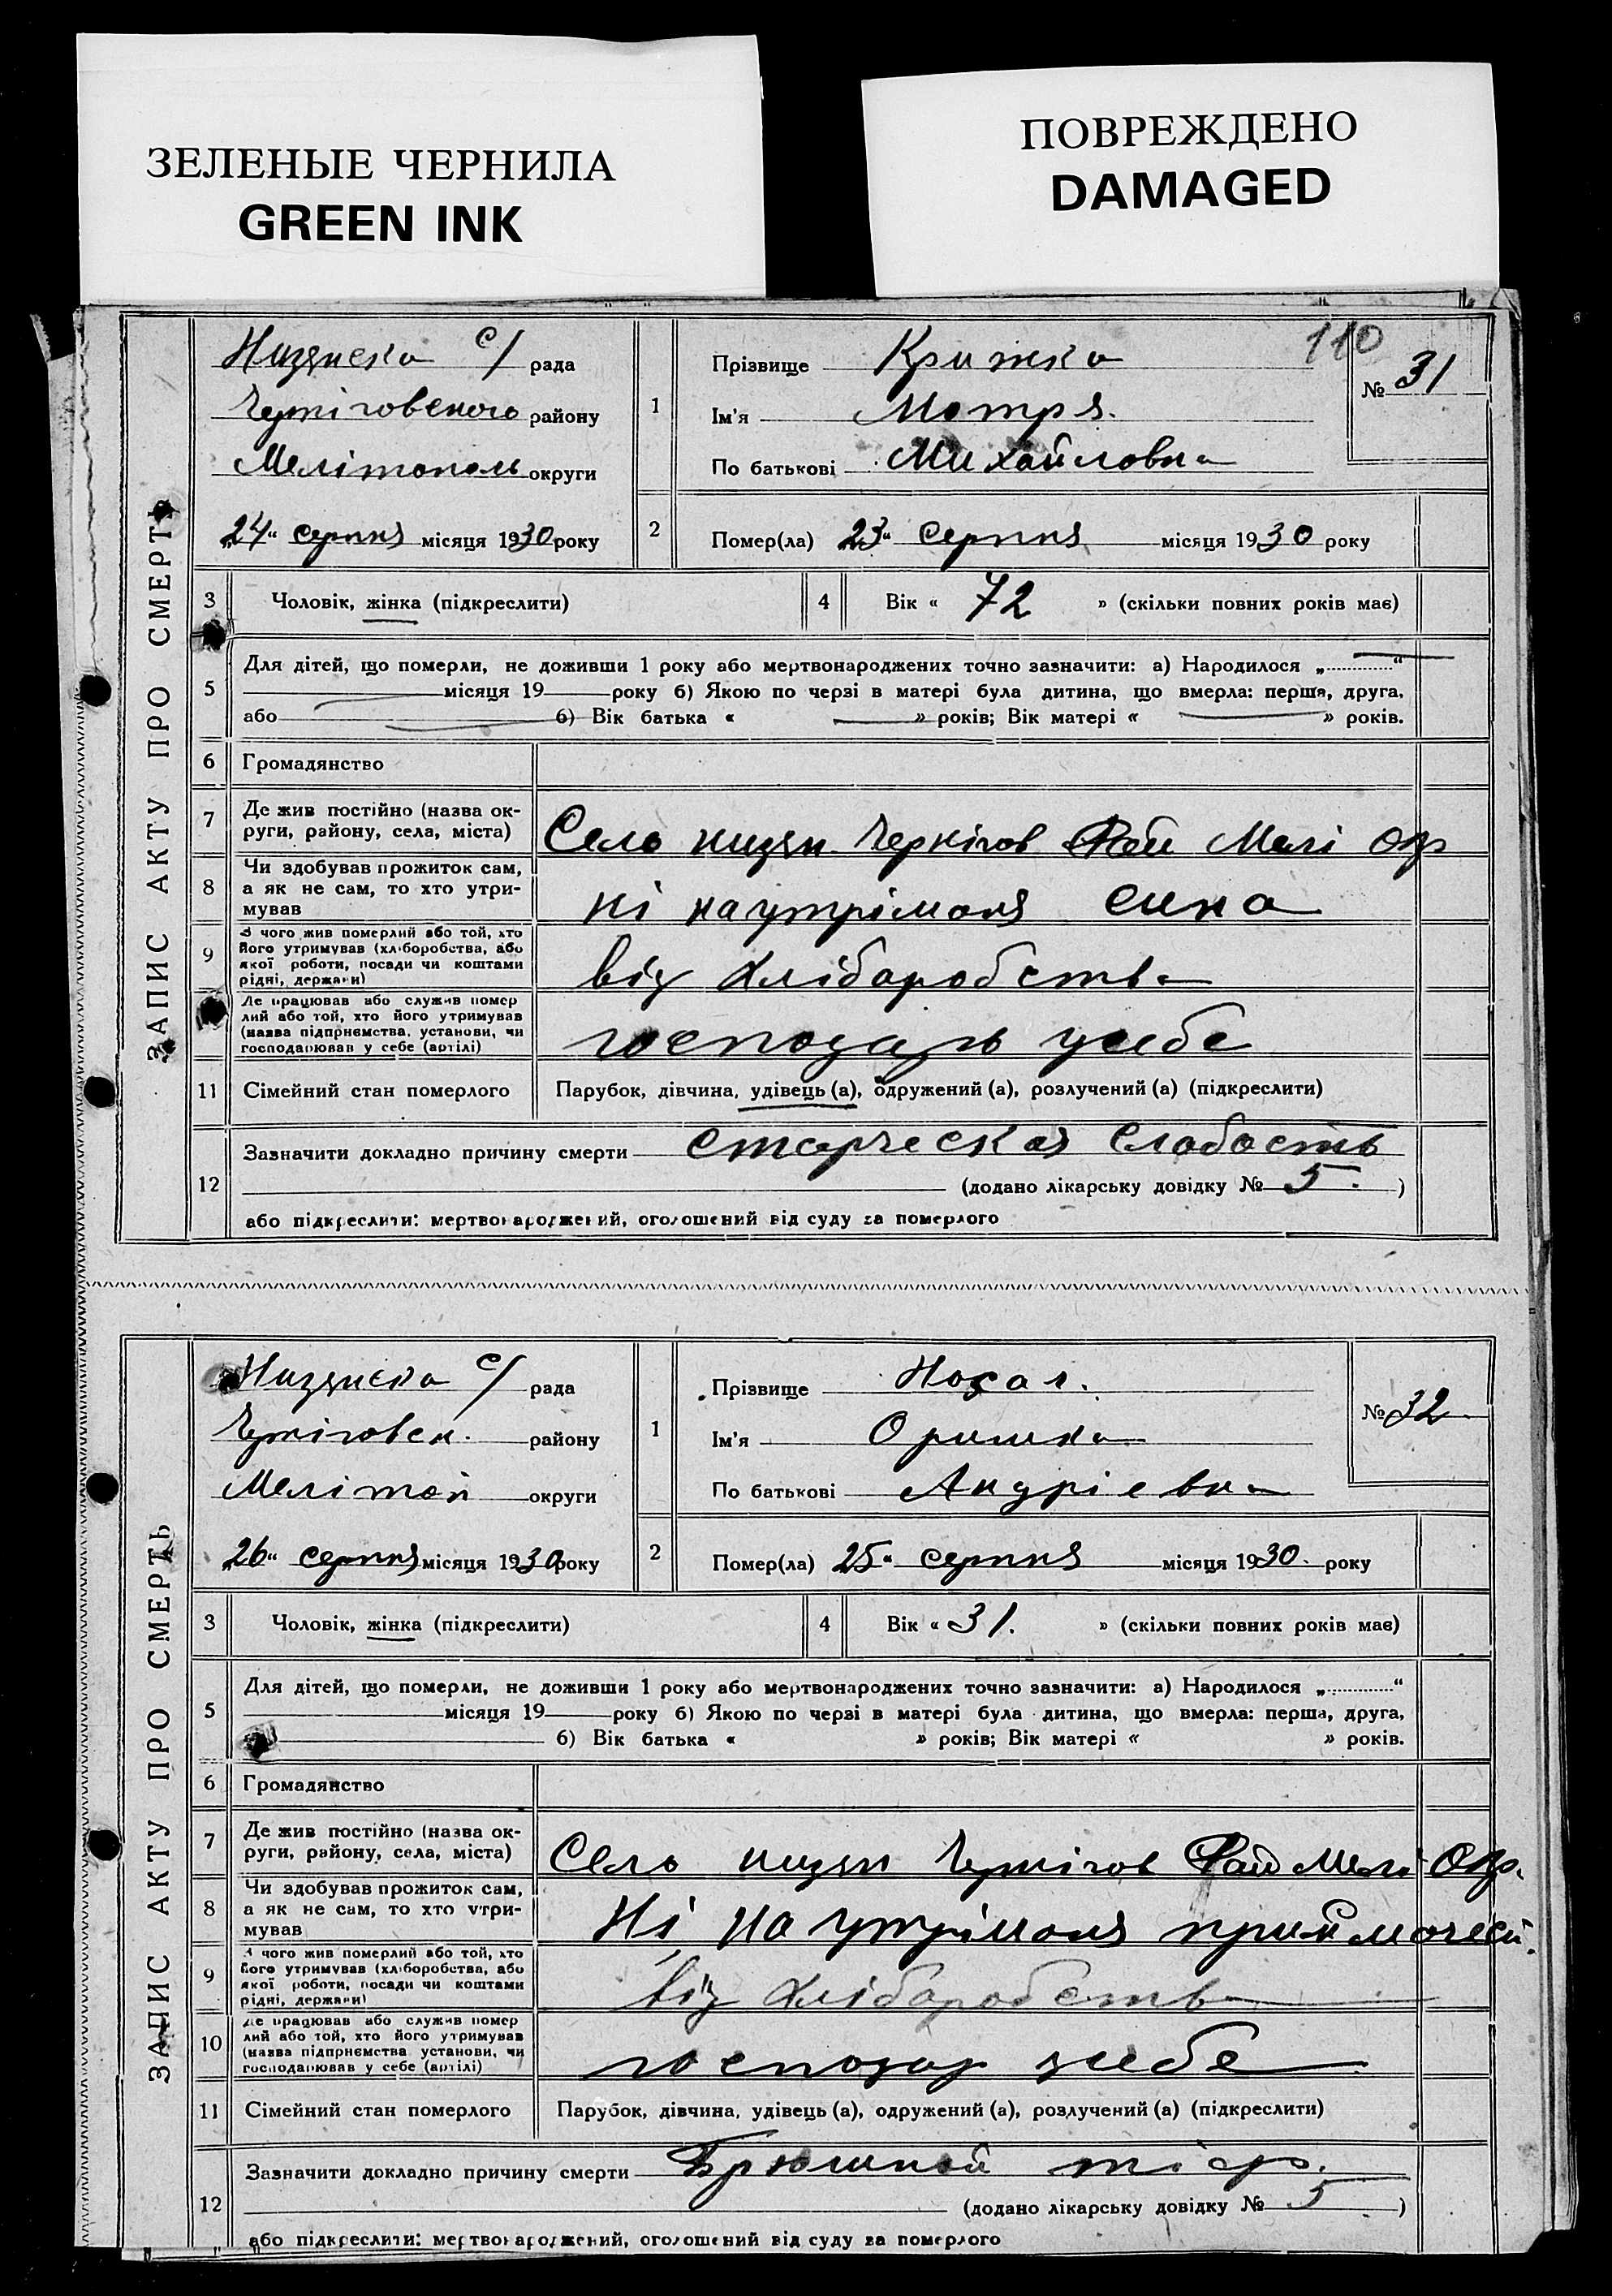 ЗЕЛЕНЫЕ ЧЕРНИЛА
GREEN INK
ПОВРЕЖДЕНО
DAMAGED
ЗАПИС АКТУ ПРО СМЕРТЬ
110
Низянска с/ рада
Черніговского району
Мелітополь округи
„24“ серпня місяця 1930 року
1
Прізвище Крижка
Ім'я Мотря.
По батькові Михайловна
№ 31
2
Помер(ла) 23“ серпня місяця 1930 року
3 Чоловік, жінка (підкреслити)
4 Вік « 72 » (скільки повних років має)
5
Для дітей, що померли, не доживши 1 року або мертвонароджених точно зазначити: а) Народилося „............“
місяця 19 року б) Якою по черзі в матері була дитина, що вмерла: перша, друга,
або б) Вік батька « » років; Вік матері « » років.
6 Громадянство
7 Де жив постійно (назва ок-
руги, району, села, міста)
Село низян Чернігов Рай Мелі Окр
8 Чи здобував прожиток сам,
а як не сам, то хто утри-
мував
ні наутріманя сина
9 З чого жив померлий або той, хто
його утримував (хліборобства, або
якої роботи, посади чи коштами
рідні, держави)
від хлібаробства
Де працював або служив помер
лий або той, хто його утримував
(назва підприємства, установи, чи
господарював у себе (артілі)
господарь усебе
11 Сімейний стан померлого
Парубок, дівчина, удівець (а), одружений (а), розлучений (а) (підкреслити)
12
Зазначити докладно причину смерти старческая слабость
(додано лікарську довідку № 5. )
або підкреслити: мертвонароджений, оголошений від суду за померлого
ЗАПИС АКТУ ПРО СМЕРТЬ
Низянска с/ рада
Черніговск. району
Меліто округи
„26“ серпня місяця 1930 року
1
Прізвище
Ім'я Оришка
По батькові Андріевна
№ 32
2
Помер(ла) 25“ серпня місяця 1930. року
3 Чоловік, жінка (підкреслити)
4 Вік « 31. » (скільки повних років має)
5
Для дітей, що померли, не доживши 1 року або мертвонароджених точно зазначити: а) Народилося „............“
місяця 19 року б) Якою по черзі в матері була дитина, що вмерла: перша, друга,
б) Вік батька « » років; Вік матері « » років.
6 Громадянство
7 Де жив постійно (назва ок-
руги, району, села, міста)
Село низян Чернігов Рай Мелі Окр.
8 Чи здобував прожиток сам,
а як не сам, то хто утри-
мував
Ні на утріманя
9 З чого жив померлий або той, хто
його утримував (хліборобства, або
якої роботи, посади чи коштами
рідні, держави)
від хлібаробства
10 Де працював або служив помер
лий або той, хто його утримував
(назва підприємства установи, чи
господарював у себе (артілі)
господар усебе
11 Сімейний стан померлого
Парубок, дівчина, удівець (а), одружений (а), розлучений (а) (підкреслити)
12
Зазначити докладно причину смерти Брюшной тіф.
(додано лікарську довідку № 5 )
або підкреслити: мертвонароджений, оголошений від суду за померлого